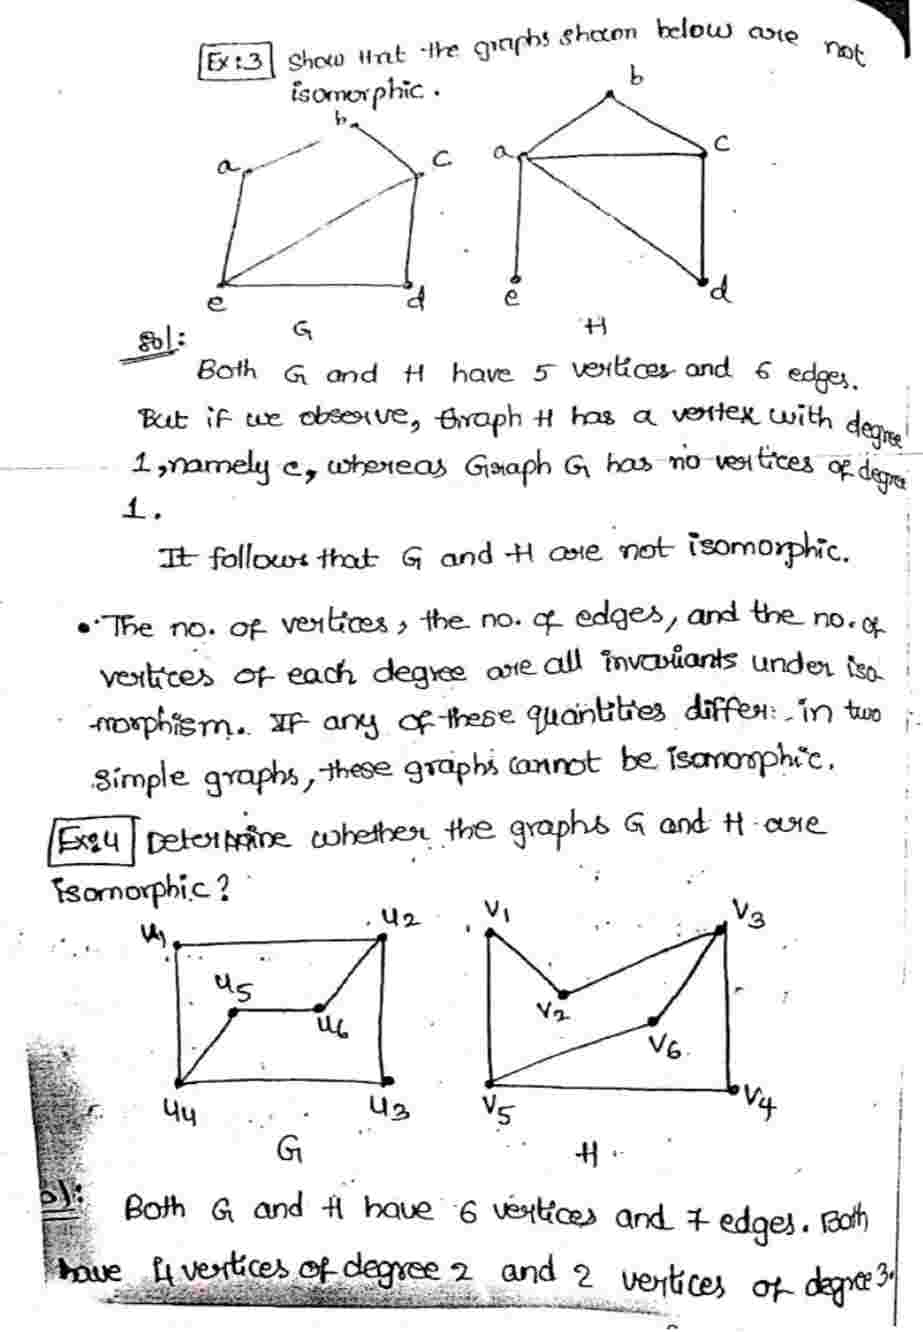 Ex:3 Show that the graphs shown below are not
isomorphic.
b
a
c
e
d
G
b
a
c
e
d
H
Sol:
Both G and H have 5 vertices and 6 edges.
But if we observe, Graph H has a vertex with degree
1, namely e, whereas Graph G has no vertices of degree
1.
It follows that G and H are not isomorphic.
• The no. of vertices, the no. of edges, and the no. of
vertices of each degree are all invariants under iso-
-morphism. If any of these quantities differ in two
simple graphs, these graphs cannot be isomorphic.
Ex:4 Determine whether the graphs G and H are
isomorphic?
u1
u2
u5
u6
u4
u3
G
v1
v3
v2
v6
v5
v4
H
Both G and H have 6 vertices and 7 edges. Both
have 4 vertices of degree 2 and 2 vertices of degree 3.